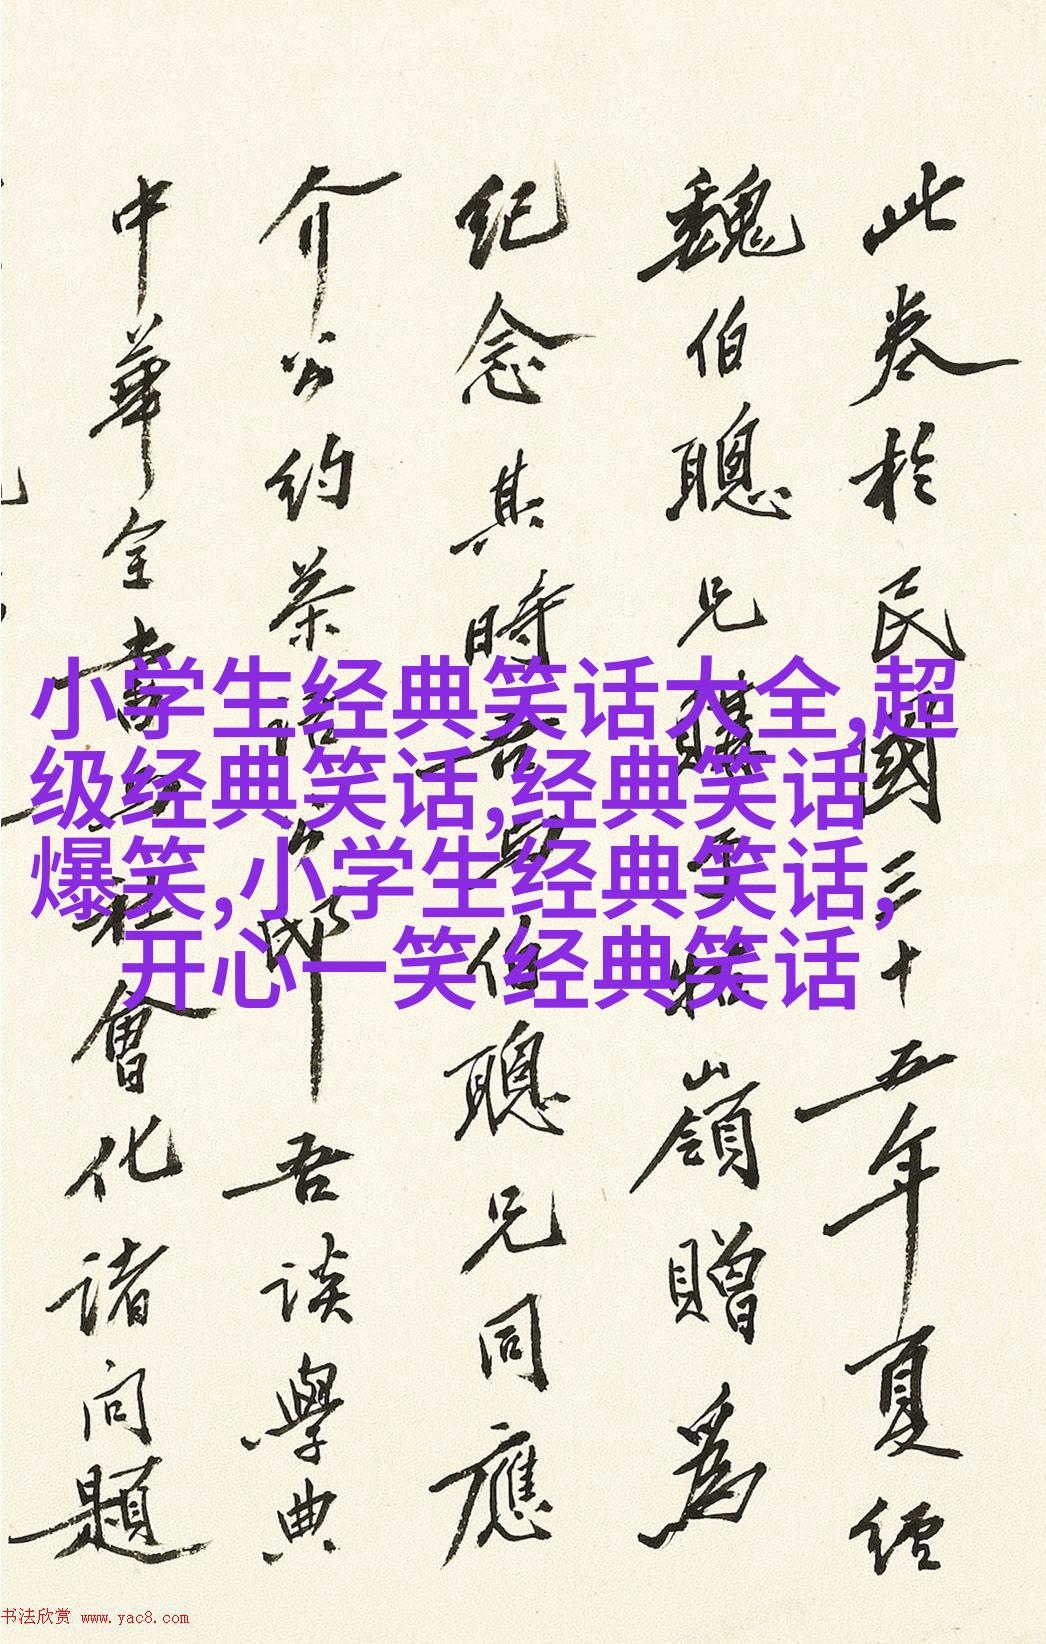 此卷於民國三十五年夏經
魏伯聰兄購于牯嶺贈爲
紀念其時吾與伯聰兄同應
介公約茶 吾談學典
中華全書與社會化諸问題
小学生经典笑话大全,超
级经典笑话,经典笑话
爆笑,小学生经典笑话,
开心一笑 经典笑话
书法欣赏 www.yac8.com